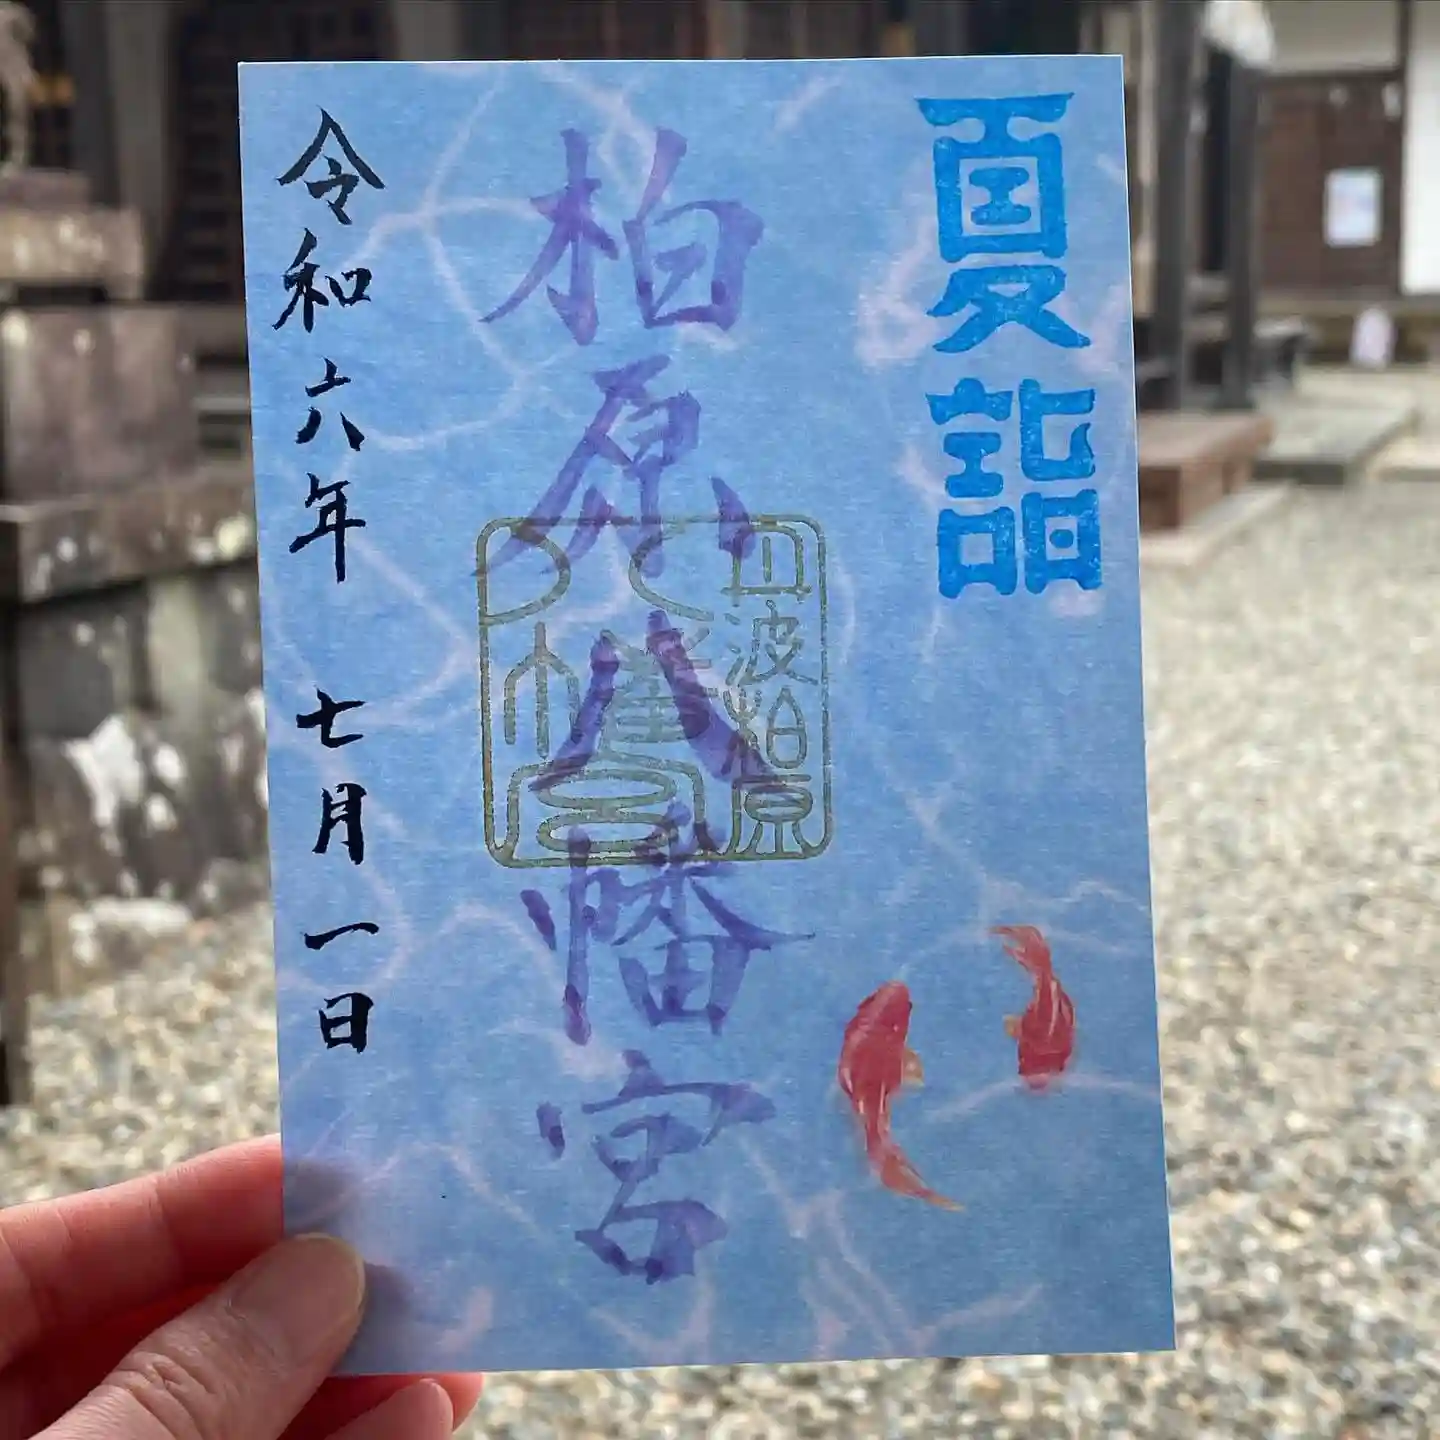 夏詣
柏原八幡宮
丹波柏原
八幡宮
令和六年 七月一日